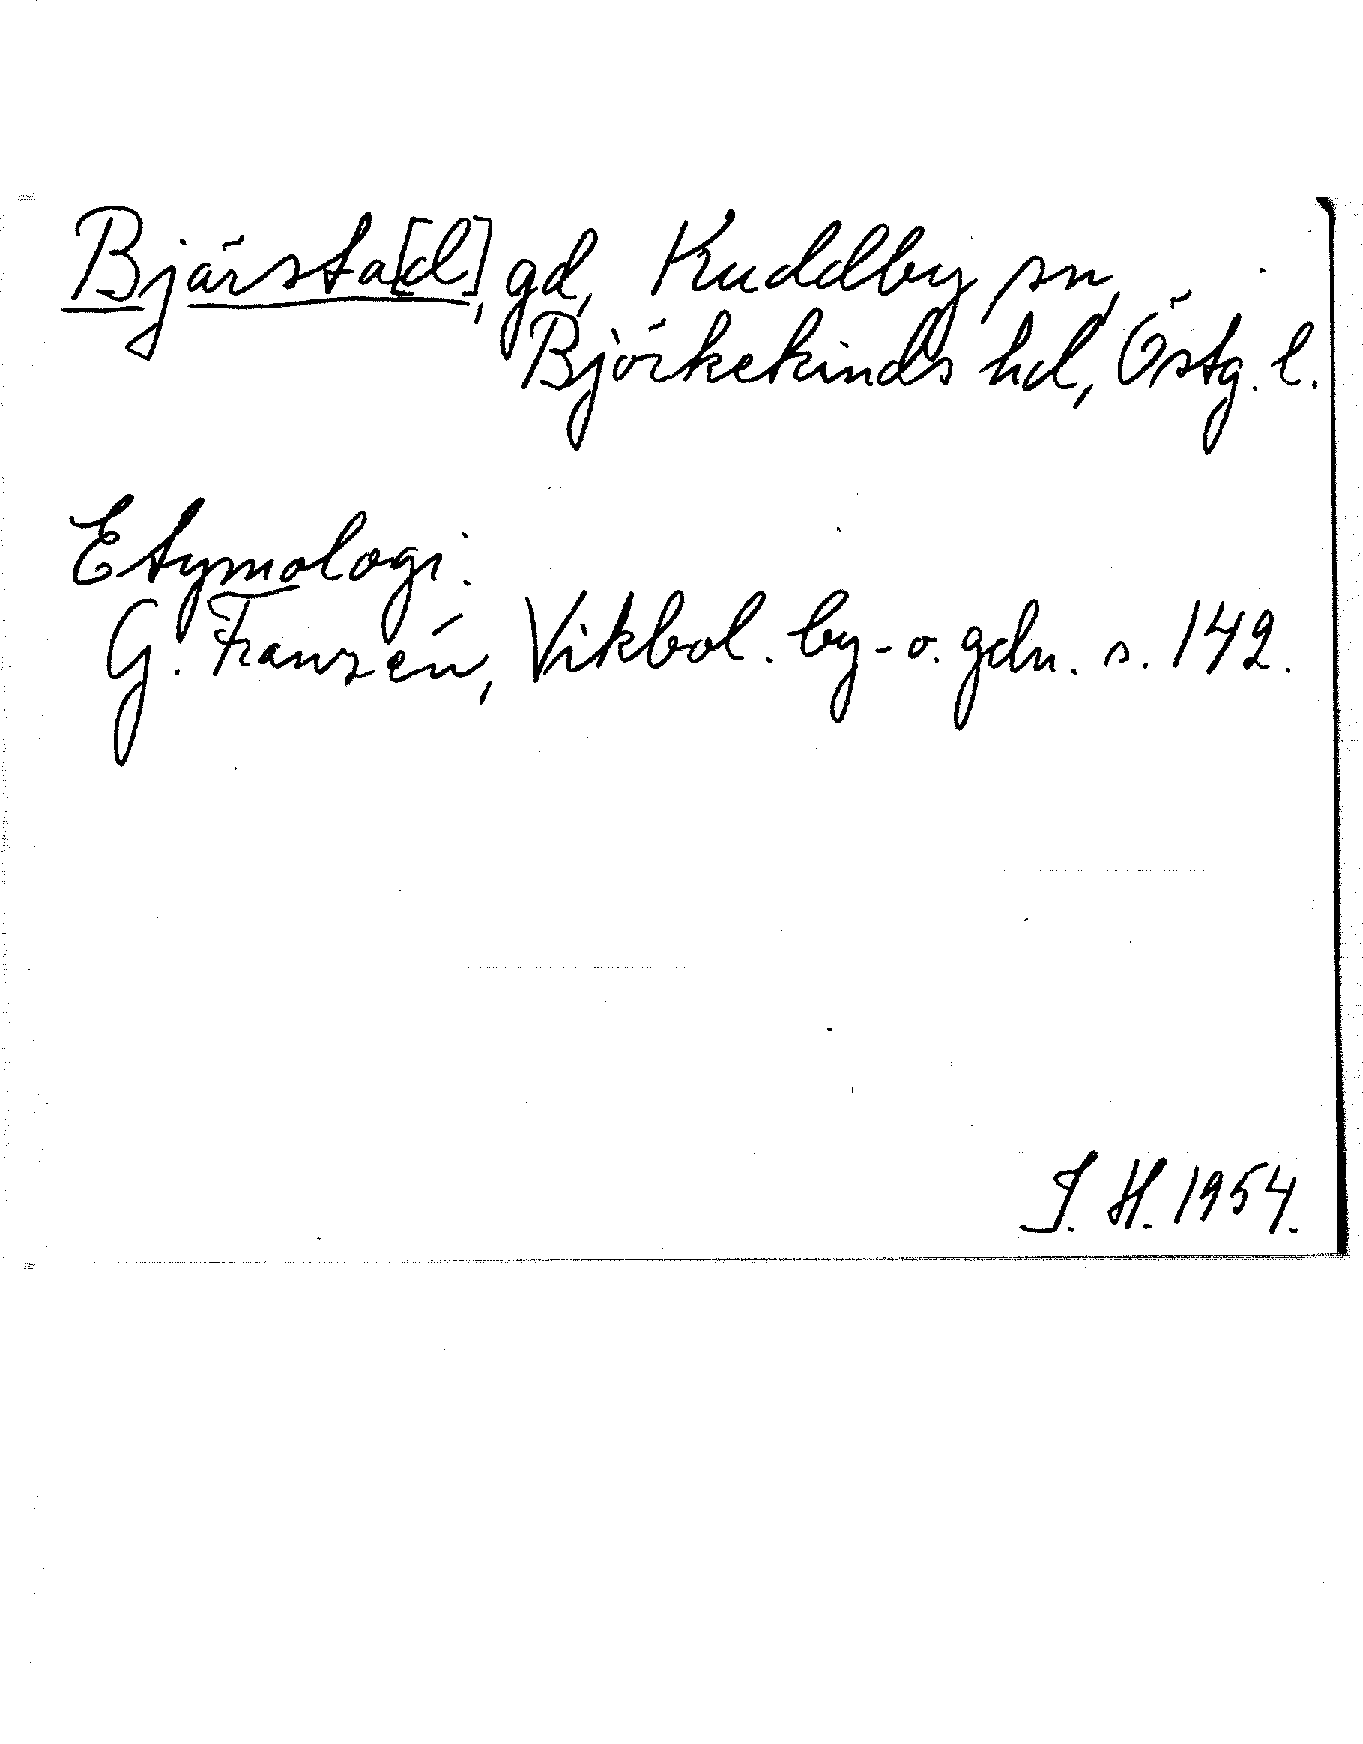 Bjärsta[d], gd, Kuddby sn,
Björkekinds hd, Östg. l.
Etymologi:
G. Franzén, Vikbol. by- o. gdn. s. 142.
I. H. 1954.